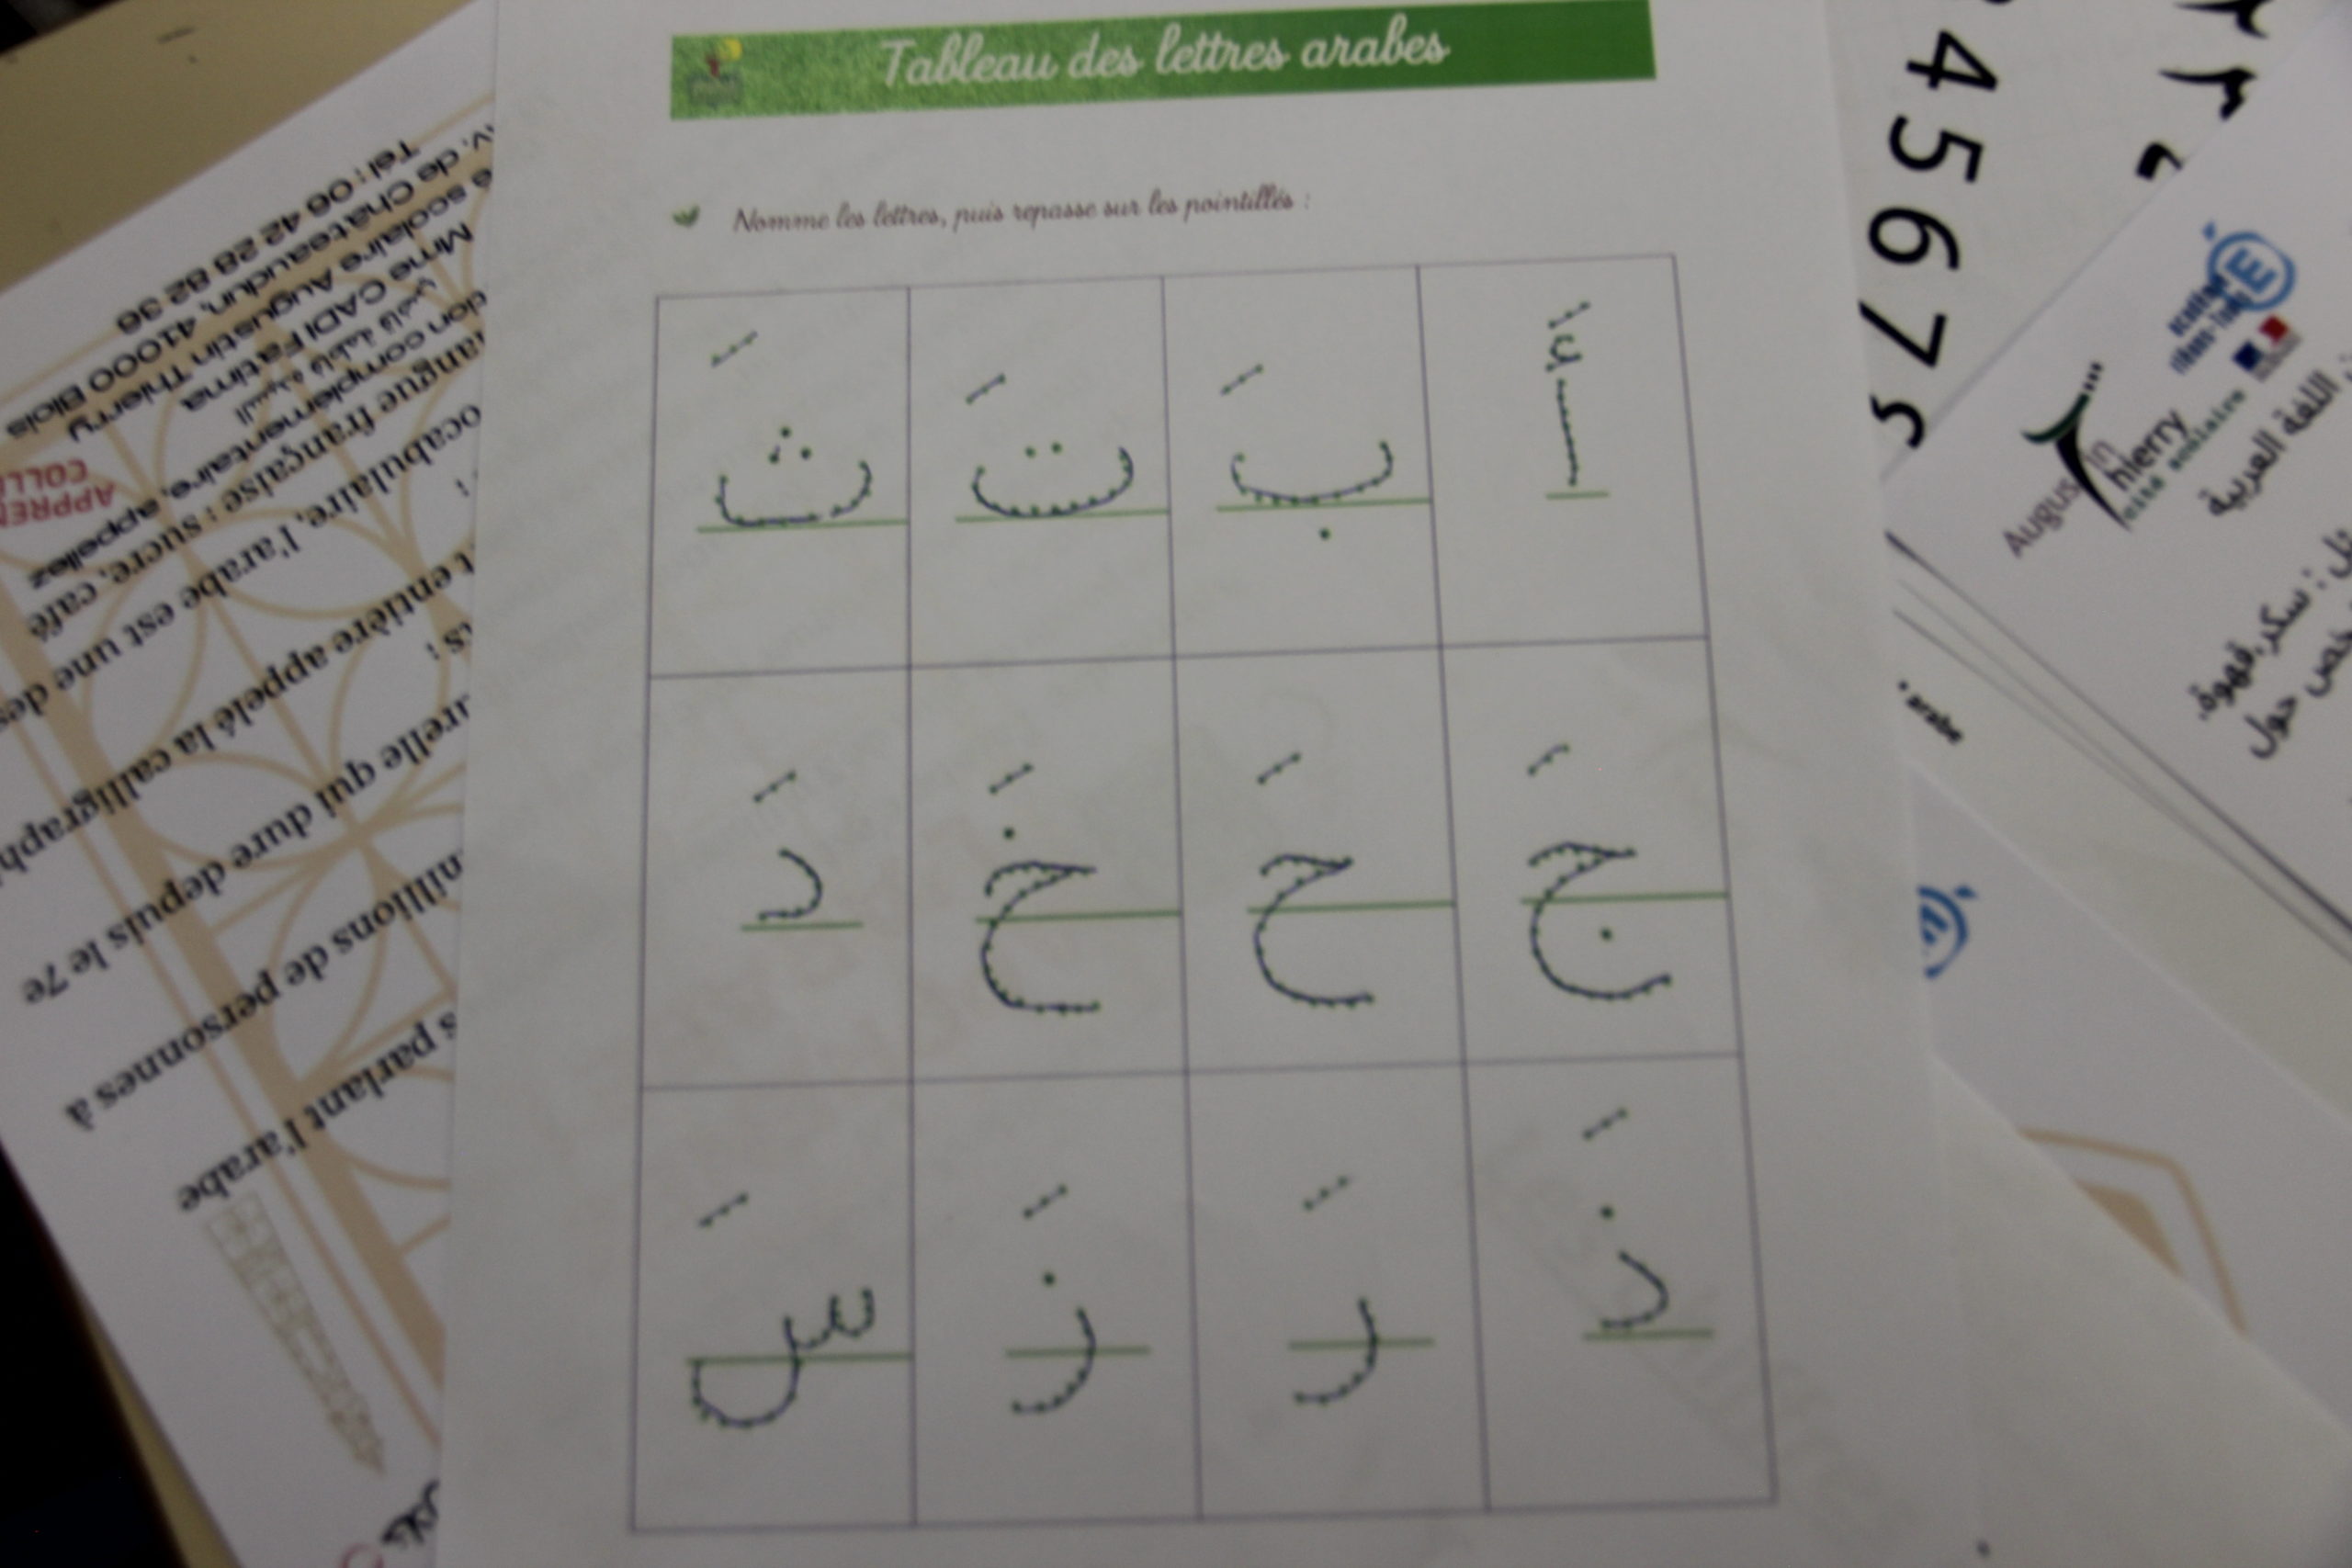 Tableau des lettres arabes
Nomme les lettres, puis repasse sur les pointillés :
أَ بَ تَ ثَ
جَ حَ خَ دَ
ذَ رَ زَ سَ
s parlant l'arabe
millions de personnes à
urelle qui dure depuis le 7e
t entière appelé la calligraphi
ocabulaire, l'arabe est une des
langue française : sucre, café
complémentaire, appelez
السيدة فاطمة قاضي
Mme CADI Fatima
scolaire Augustin Thierry
v. de Châteaudun, 41000 Blois
Tél : 06 42 28 82 36
APPREN
COLL
4 5 6 7
Augustin
Thierry
cité scolaire
اللغة العربية
سكر، قهوة.
حول
arabe